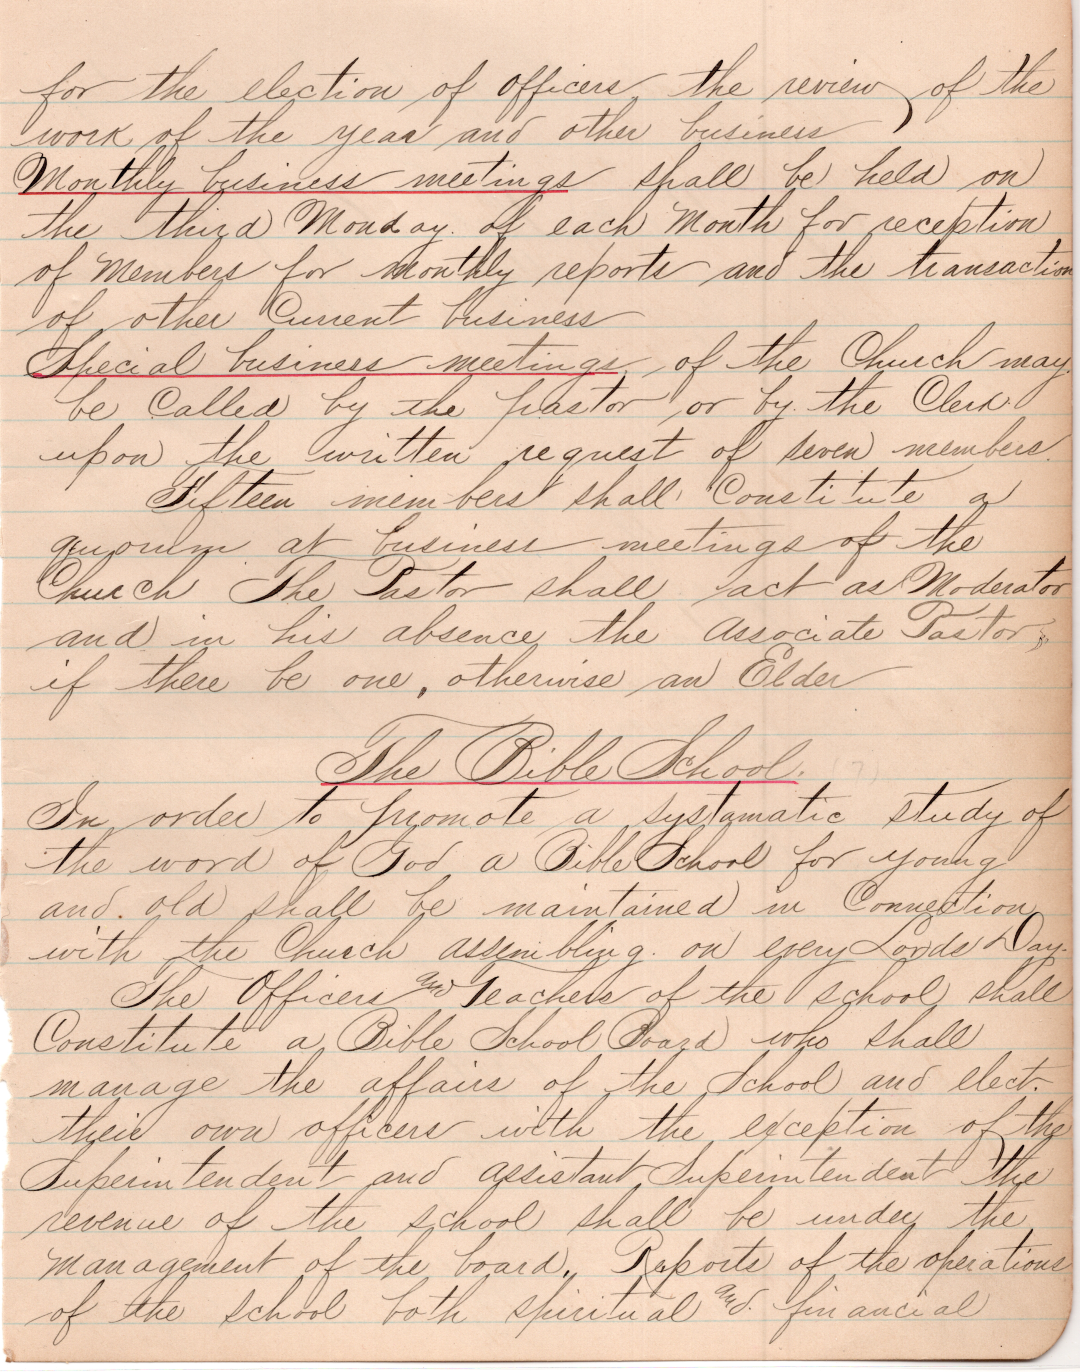 for the election of officers the review of the
work of the year and other business
Monthly business meetings shall be held on
the third Monday. of each Month for reception
of Members for monthly reports and the transaction
of other Current business
Special business meetings of the Church may.
be Called by the pastor or by. the Clerk
upon the written request of seven members.
Fifteen members shall Constitute a
quorum at business meetings of the
Church The Pastor shall act as Moderator
and in his absence the Associate Pastor,
if there be one, otherwise an Elder
The Bible School. (7)
In order to promote a systamatic study of
the word of God a Bible School for young
and. old shall be maintained in Connection
with the Church assembling. on every Lords Day.
The Officers and Teachers of the school shall
Constitute a Bible School Board who shall
manage the affairs of the School and elect.
their own officers with the exception of the
Superintendent and assistant Superintendent the
revenue of the school shall be under the
management of the board. Reports of the operations
of the school both spiritual and. financial